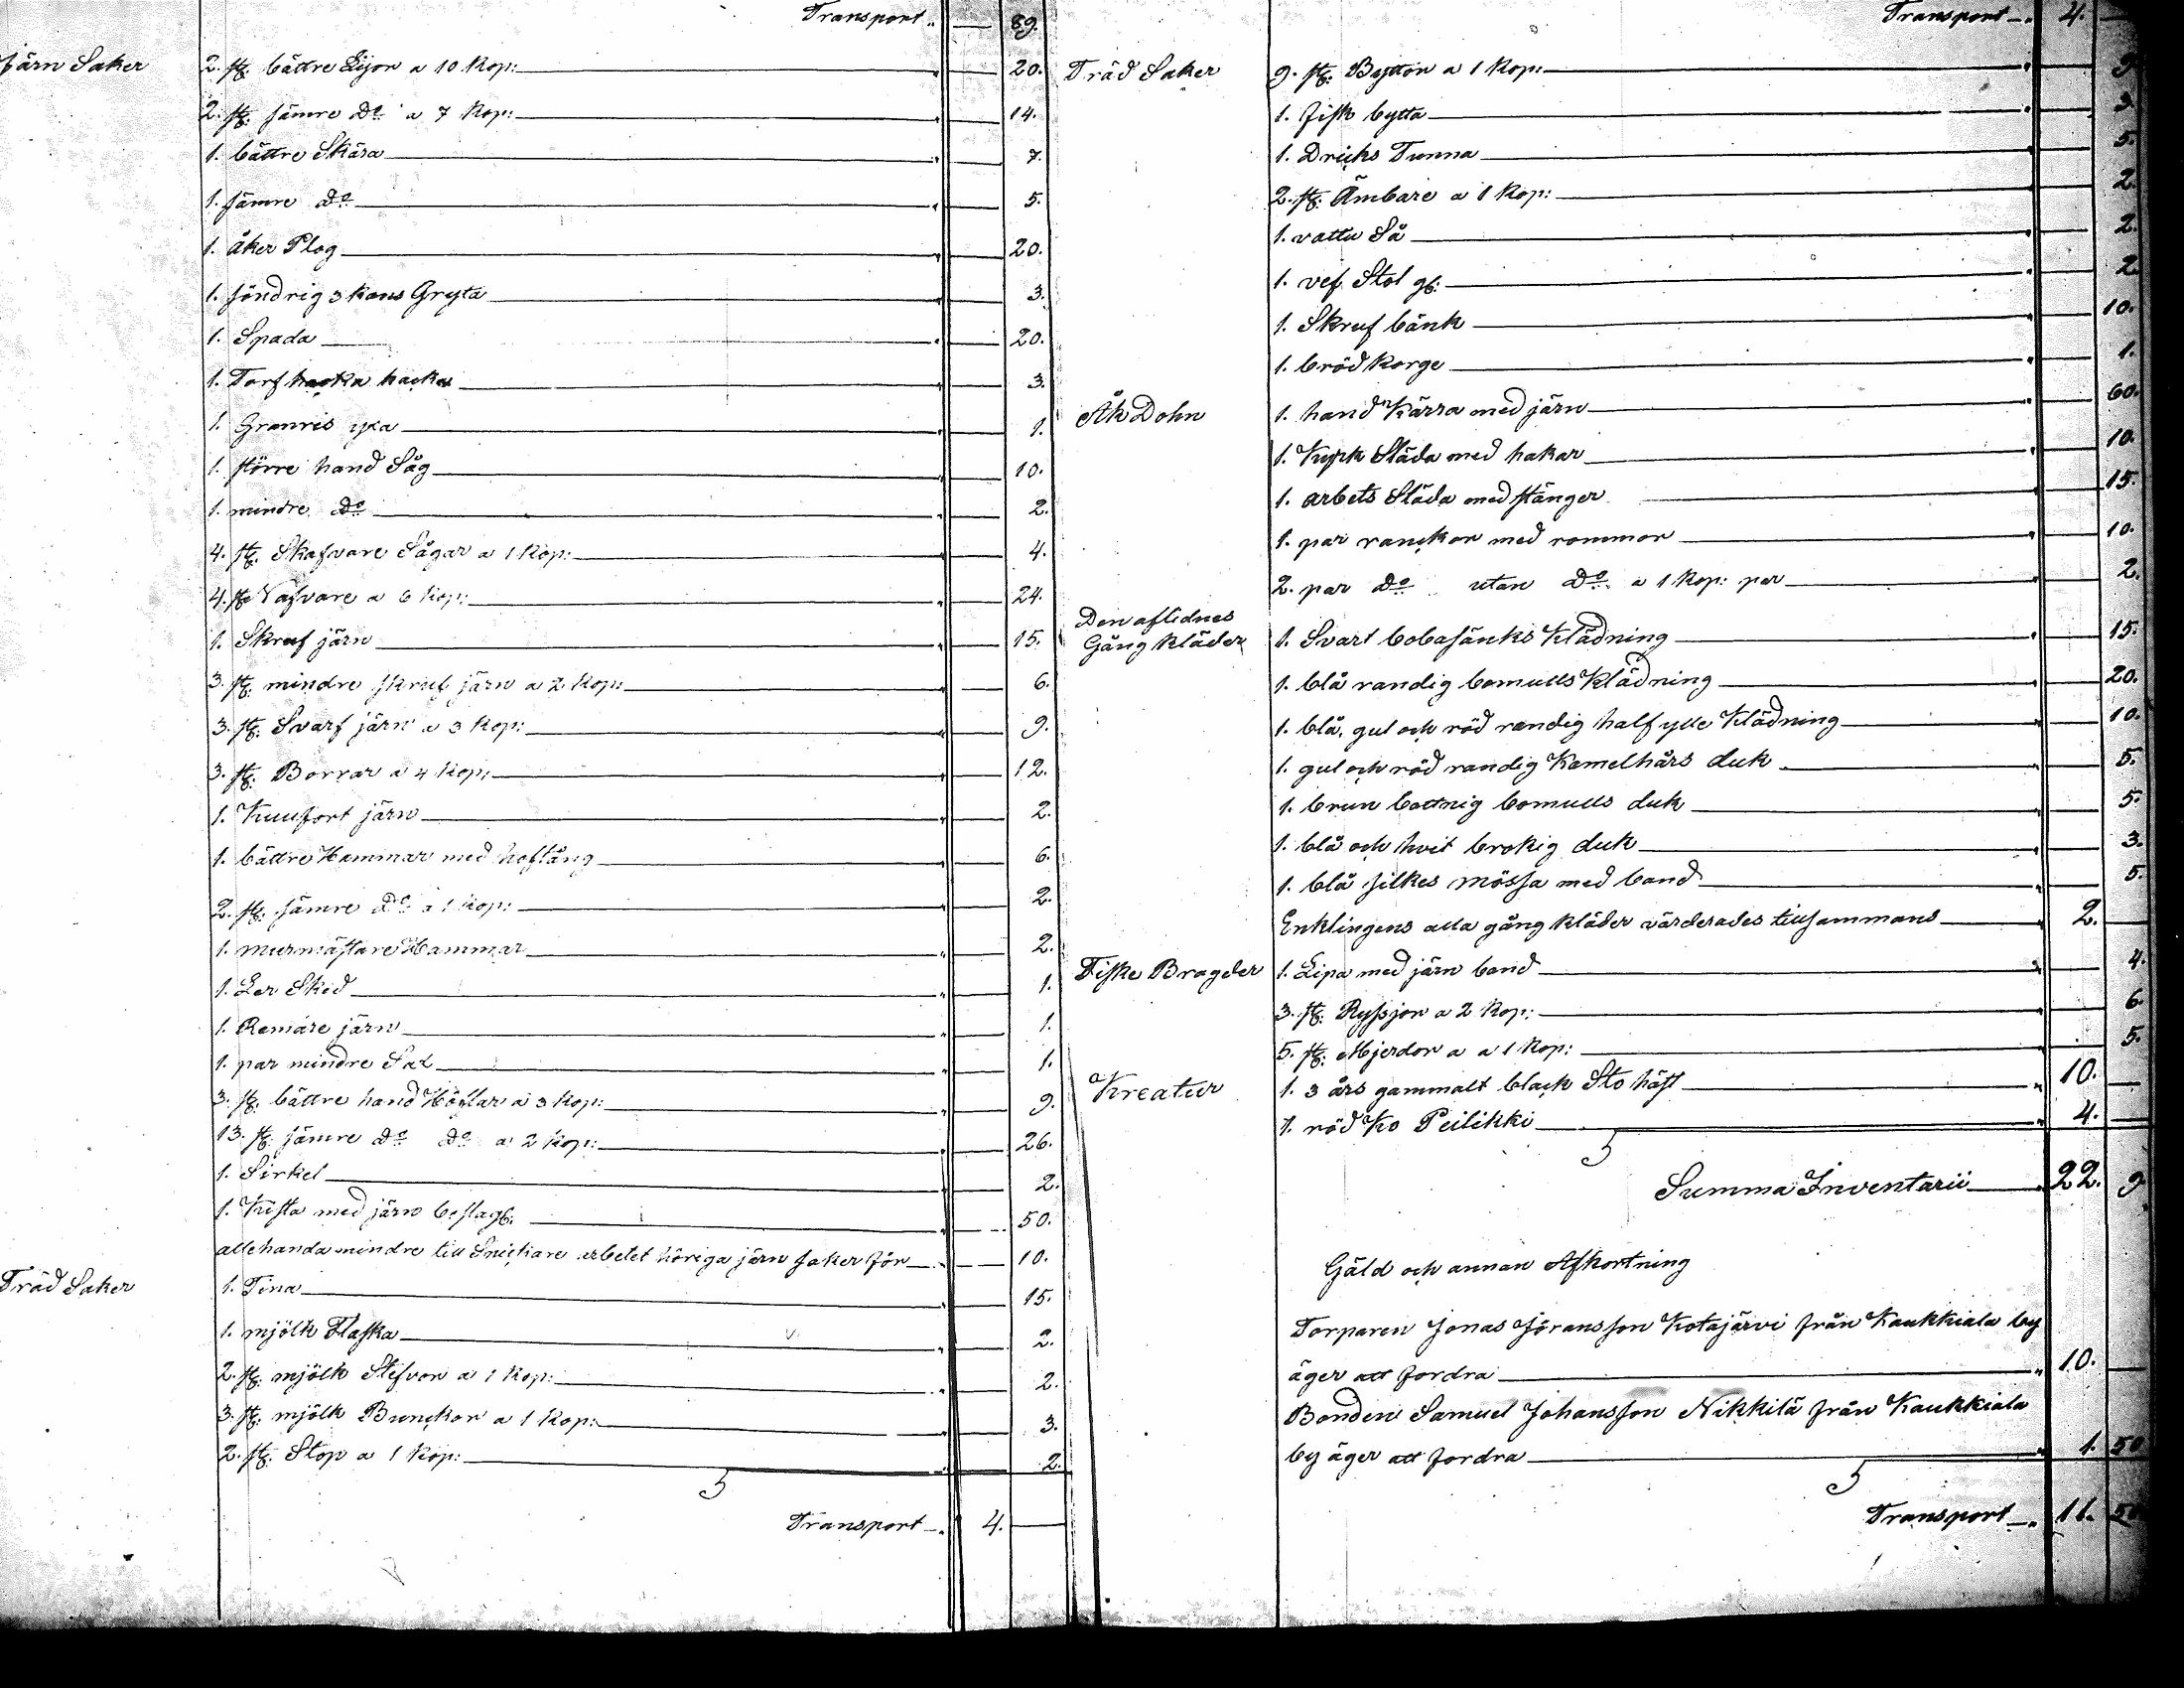 Transport „ — 89.
Järn Saker 2. st. bättre Lijor a 10 Kop: „ — 20.
2. st. sämre Do a 7 Kop: „ — 14.
1. bättre Skära „ — 7.
1. sämre Do „ — 5.
1. åker Plog „ — 20.
1. söndrig 3 kans Gryta „ — 3.
1. Spada „ — 20.
1. Torf hacka „ — 3.
1. Granris yxa „ — 1.
1. större hand Såg „ — 10.
1. mindre Do „ — 2.
4. st. Skafvare Sågar a 1 Kop: „ — 4.
4. st. Nafvare a 6 Kop: „ — 24.
1. Skruf järn „ — 15.
3. st. mindre skruf järn a 2 Kop: „ — 6.
3. st. Svarf järn a 3 Kop: „ — 9.
3. st. Borrar a 4 Kop: „ — 12.
1. järn „ — 2.
1. bättre Hammar med hoftång „ — 6.
2. st. sämre Do a 1 Kop: „ — 2.
1. murmästare Hammar „ — 2.
1. Ler Sked „ — 1.
1. järn „ — 1.
1. par mindre Sax „ — 1.
3. st. bättre hand Höflar a 3 Kop: „ — 9.
13. st. sämre Do Do a 2 Kop: „ — 26.
1. Sirkel „ — 2.
1. Kista med järn beslag. „ — 50.
allehanda mindre till Snickare arbetet höriga järn saker för „ — 10.
Träd Saker 1. Tina „ — 15.
1. mjölk Flaska „ — 2.
2. st. mjölk Stefvor a 1 Kop: „ — 2.
3. st. mjölk Bunckor a 1 Kop: „ — 3.
2. st. Stop a 1 Kop: „ — 2.
Transport „ 4. —
Transport „ 4. —
Träd Saker 9. st. Byttor a 1 Kop: „ — 9.
1. fisk bytta — 3.
1. Dricks Tunna „ — 5.
2. st. Ämbare a 1 Kop: „ — 2.
1. vattu Så „ — 2.
1. vef Stol „ — 2.
1. Skruf bänk „ — 10.
1. bröd korge „ — 1.
Åk Dohn 1. hand Kärra med järn „ — 60.
1. Kyrk Släda med hakar „ — 10.
1. arbets Släda med stänger „ — 15.
1. par ranckor med rommor „ — 10.
2. par Do utan Do a 1 Kop: par „ — 2.
Den aflidnes
Gång kläder 1. Svart bobasänks Klädning „ — 15.
1. blå randig bomulls Klädning „ — 20.
1. blå, gul och röd randig half ylle Klädning „ — 10.
1. gul och röd randig Kamelhårs duk „ — 5.
1. brun bottnig bomulls duk „ — 5.
1. blå och hvit brokig duk „ — 3.
1. blå silkes mössa med band „ — 5.
Enklingens alla gång kläder värderades tillsammans „ 2. —
Fiske Bragder 1. Lipa med järn band „ — 4.
3. st. Ryssjor a 2 Kop: „ — 6.
5. st. Mjerdor a a 1 Kop: „ — 5.
Kreatur 1. 3 års gammalt black Sto häst „ 10. —
1. röd Ko Peilikki „ 4. —
Summa Inventarii „ 22. 9
Gäld och annan Afkortning
Torparen Jonas Jöransson Kotajärvi från Kaukkiala by
äger att fordra „ 10. —
Bonden Samuel Johansson Nikkilä från Kaukkiala
by äger att fordra „ 1. 50
Transport „ 11. 50